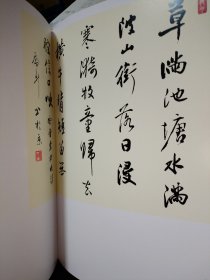 草滿池塘水滿
陂山銜落日浸
寒漪牧童歸去
橫牛背短笛無
腔信口吹
書於京